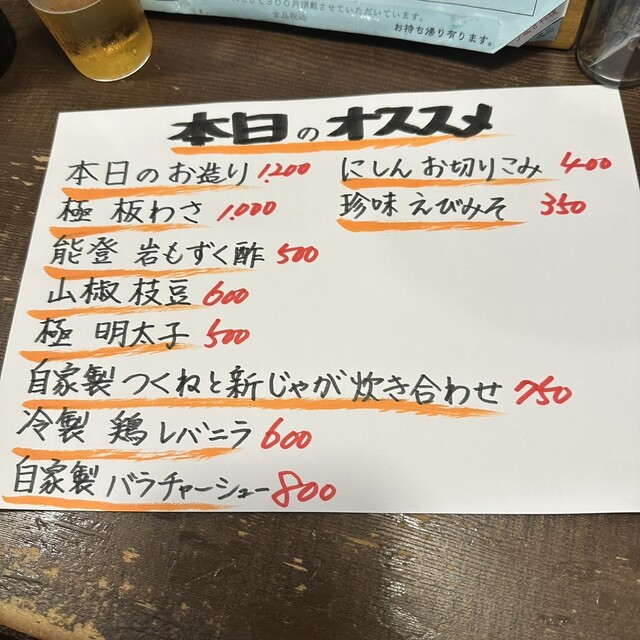 300円頂戴させていただいています。
全品税込
お持ち帰り有ります。
本日のオススメ
本日のお造り 1.200
極 板わさ 1.000
能登 岩もずく酢 500
山椒 枝豆 600
極 明太子 500
自家製 つくねと新じゃが 炊き合わせ 750
冷製 鶏レバニラ 600
自家製 バラチャーシュー 800
にしん お切りこみ 400
珍味 えびみそ 350